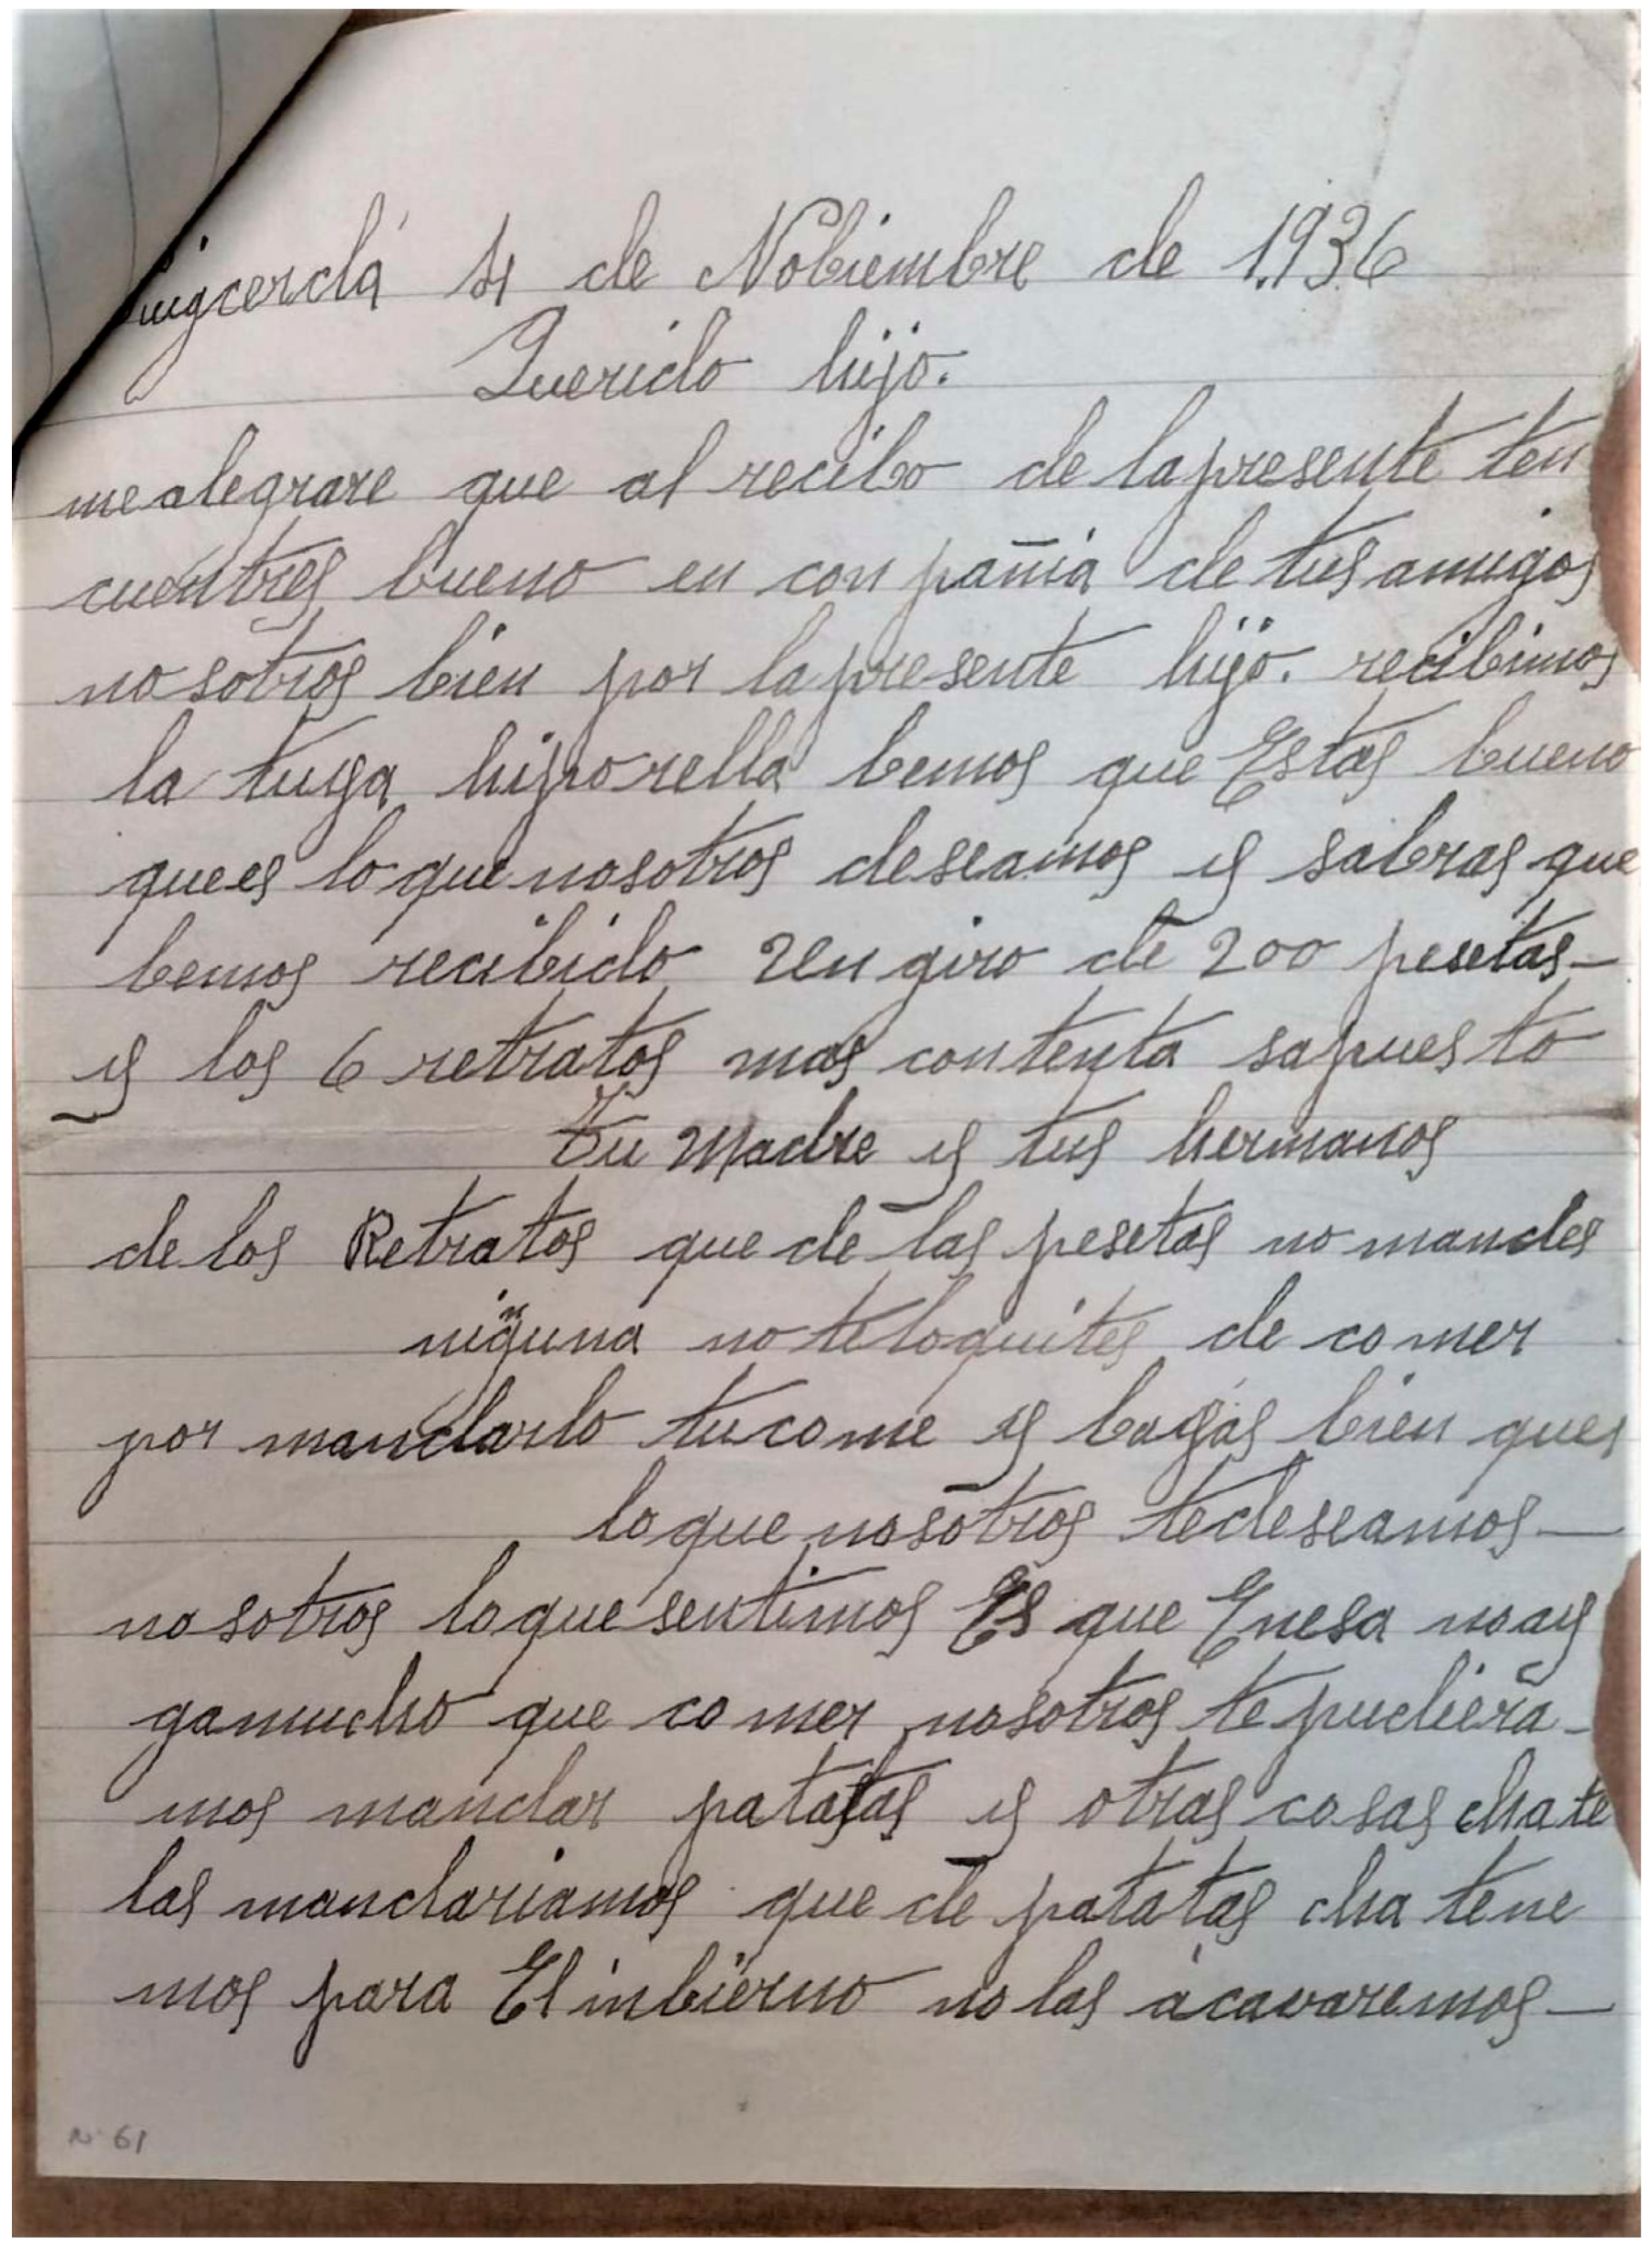 Puigcerdá 4 de Nobiembre de 1.936
Querido hijo.
me alegrare que al recibo de la presente ten
cuentres bueno en conpañia de tus amigos
nosotros bien por la presente hijo. recibimos
la tuya hijporella bemos que Estas bueno
quees lo que nosotros deseamos y sabras que
bemos recibido Un giro de 200 pesetas-
y los 6 retratos mas contenta sapuesto
Tu Madre y tus hermanos
de los Retratos que de las pesetas no mandes
ninguna no teloquites de comer
por mandarlo tucome y bayas bien ques
loque nosotros tedeseamos-
nosotros loque sentimos Es que Enesa noay
gamucho que comer nosotros te pudiera-
mos mandar patatas y otras cosas cha te
las mandariamos que de patatas cha tene
mos para El inbierno no las acavaremos-
N 61